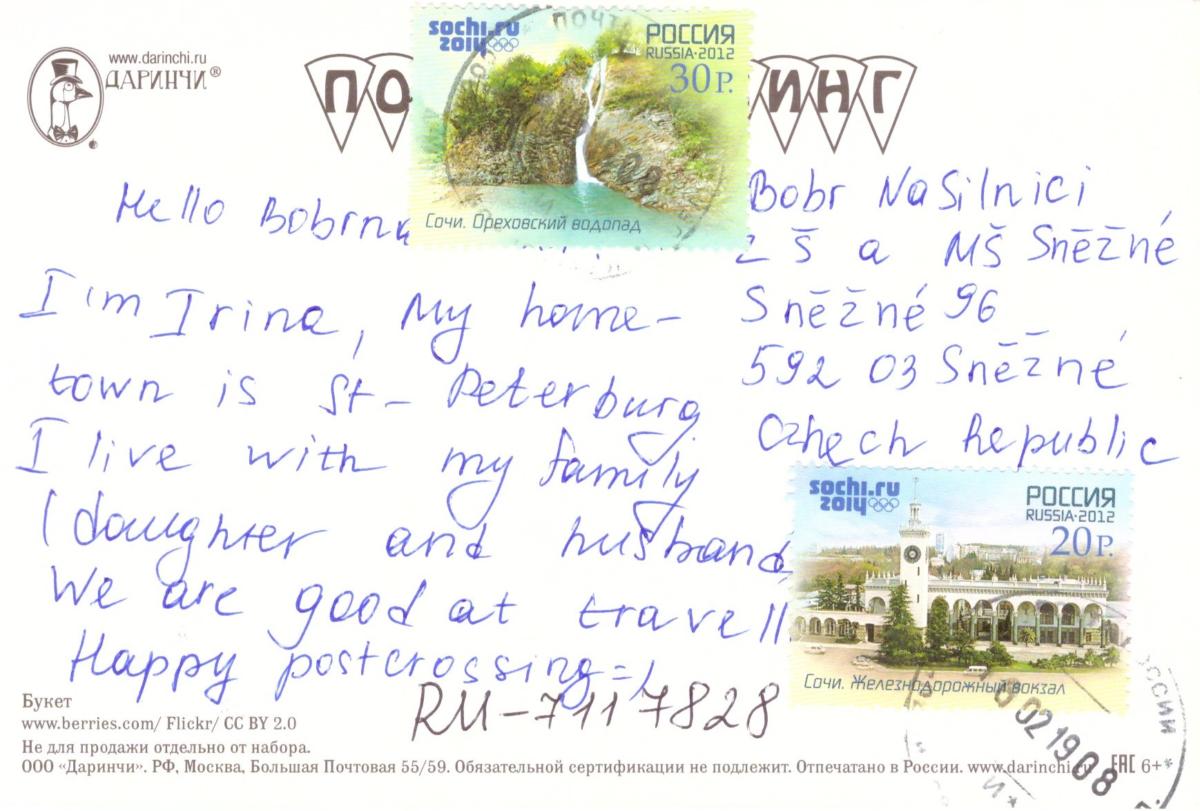 www.darinchi.ru
ДАРИНЧИ®
sochi.ru
2014
РОССИЯ
RUSSIA·2012
30 Р.
Сочи. Ореховский водопад
ИНГ
Hello Bobrna
I'm Irina, My home-
town is St-Peterburg
I live with my family
(daughter and husband
We are good at travell
Happy postcrossing =)
RU-7117828
Bobr NaSilnici
ZŠ a MŠ Sněžné
Sněžné 96
592 03 Sněžné
Czhech Republic
sochi.ru
2014
РОССИЯ
RUSSIA·2012
20 Р.
Сочи. Железнодорожный вокзал
02 19 08
Букет
www.berries.com/ Flickr/ CC BY 2.0
Не для продажи отдельно от набора.
ООО «Даринчи». РФ, Москва, Большая Почтовая 55/59. Обязательной сертификации не подлежит. Отпечатано в России. www.darinchi.ru EAC 6+